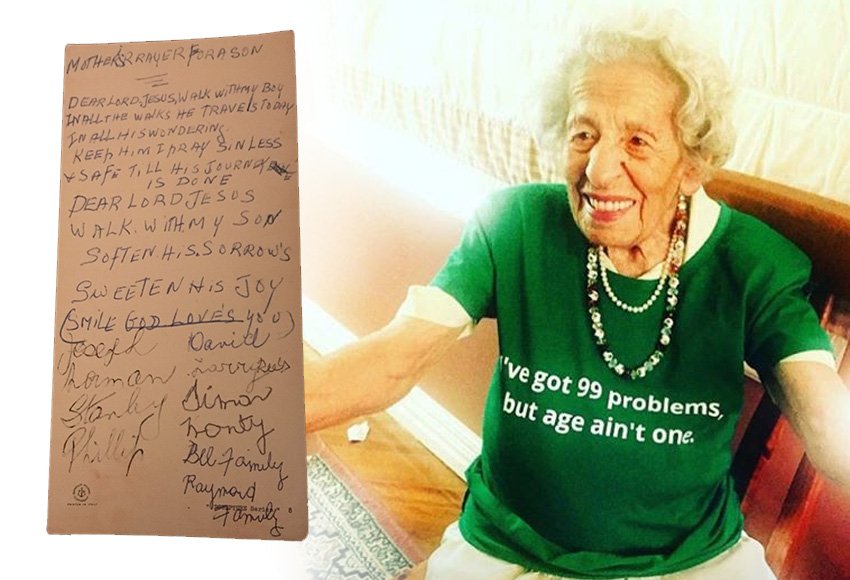 MOTHER'S PRAYER FOR A SON
DEAR LORD, JESUS, WALK WITH MY BOY
IN ALL THE WALKS HE TRAVELS TODAY
IN ALL HIS WONDERING.
KEEP HIM I PRAY SINLESS
& SAFE TILL HIS JOURNEY
IS DONE
DEAR LORD JESUS
WALK. WITH. MY SON
SOFTEN. HIS. SORROW'S
SWEETEN HIS JOY
(SMILE GOD LOVE'S YOU)
Joseph David
Norman Larry
Stanley Simon
Phillip Monty
Bell Family
Raymond
Family
PRINTED IN ITALY
Series 8
I've got 99 problems,
but age ain't one.